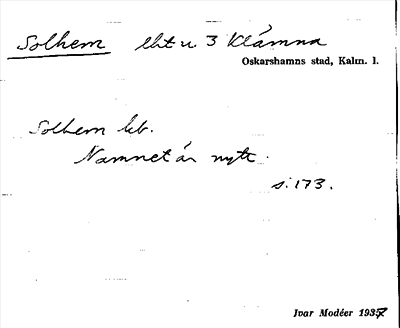 Solhem lht u 3 Klämna
Oskarshamns stad, Kalm. l.
Solhem leb.
Namnet är nytt.
s. 173.
Ivar Modéer 1937